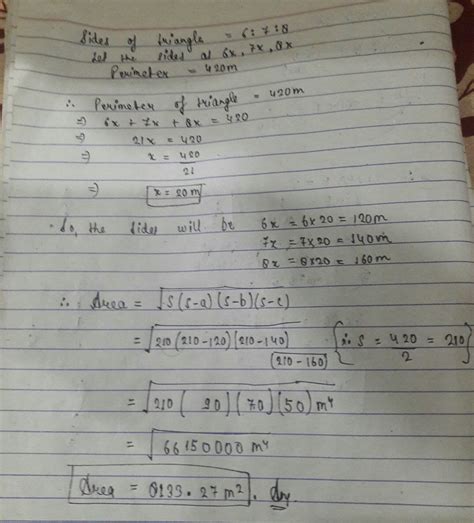 Sides of triangle = 6:7:8
Let the sides as 6x, 7x, 8x
Perimeter = 420m
∴ Perimeter of triangle = 420m
⇒ 6x + 7x + 8x = 420
⇒ 21x = 420
⇒ x = 420/21
⇒ x = 20m
So, the sides will be 6x = 6x20 = 120m
7x = 7x20 = 140m
8x = 8x20 = 160m
∴ Area = √s(s-a)(s-b)(s-c)
= √210(210-120)(210-140)(210-160) {∵ s = 420/2 = 210}
= √210(90)(70)(50) m⁴
= √66150000 m⁴
Area = 8133.27 m². Ans